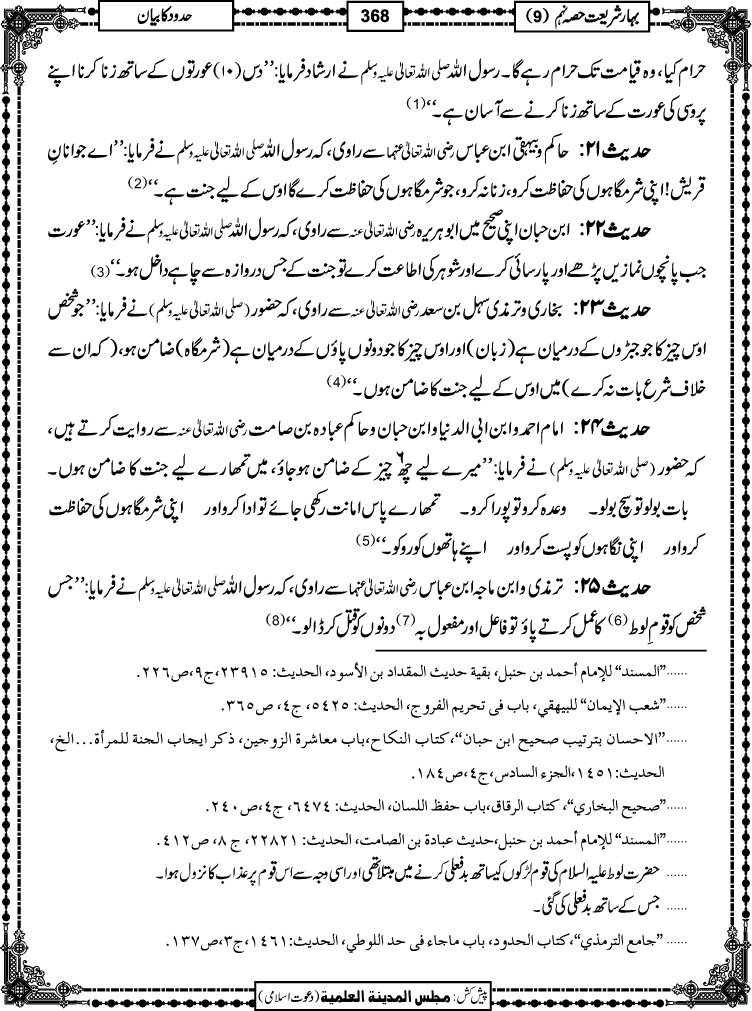 بہار شریعت حصہ نہم (9)
368
حدود کا بیان
حرام کیا، وہ قیامت تک حرام رہے گا۔ رسول اللہ صلی اللہ تعالیٰ علیہ وسلم نے ارشاد فرمایا: ’’دس (۱۰) عورتوں کے ساتھ زنا کرنا اپنے
پروسی کی عورت کے ساتھ زنا کرنے سے آسان ہے۔‘‘ (1)
حدیث ۲۱: حاکم و بیہقی ابن عباس رضی اللہ تعالیٰ عنہما سے راوی، کہ رسول اللہ صلی اللہ تعالیٰ علیہ وسلم نے فرمایا: ’’اے جوانانِ
قریش! اپنی شرمگاہوں کی حفاظت کرو، زنا نہ کرو، جو شرمگاہوں کی حفاظت کرے گا اوس کے لیے جنت ہے۔‘‘ (2)
حدیث ۲۲: ابن حبان اپنی صحیح میں ابوہریرہ رضی اللہ تعالیٰ عنہ سے راوی، کہ رسول اللہ صلی اللہ تعالیٰ علیہ وسلم نے فرمایا: ’’عورت
جب پانچوں نمازیں پڑھے اور پارسائی کرے اور شوہر کی اطاعت کرے تو جنت کے جس دروازہ سے چاہے داخل ہو۔‘‘ (3)
حدیث ۲۳: بخاری و ترمذی سہل بن سعد رضی اللہ تعالیٰ عنہ سے راوی، کہ حضور (صلی اللہ تعالیٰ علیہ وسلم) نے فرمایا: ’’جو شخص
اوس چیز کا جو جبڑوں کے درمیان ہے (زبان) اور اوس چیز کا جو دونوں پاؤں کے درمیان ہے (شرمگاہ) ضامن ہو، (کہ ان سے
خلاف شرع بات نہ کرے) میں اوس کے لیے جنت کا ضامن ہوں۔‘‘ (4)
حدیث ۲۴: امام احمد و ابن ابی الدنیا و ابن حبان و حاکم عبادہ بن صامت رضی اللہ تعالیٰ عنہ سے روایت کرتے ہیں،
کہ حضور (صلی اللہ تعالیٰ علیہ وسلم) نے فرمایا: ’’میرے لیے چھ ۶ چیز کے ضامن ہو جاؤ، میں تمھارے لیے جنت کا ضامن ہوں۔
بات بولو تو سچ بولو۔ وعدہ کرو تو پورا کرو۔ تمھارے پاس امانت رکھی جائے تو ادا کرو اور اپنی شرمگاہوں کی حفاظت
کرو اور اپنی نگاہوں کو پست کرو اور اپنے ہاتھوں کو روکو۔‘‘ (5)
حدیث ۲۵: ترمذی و ابن ماجہ ابن عباس رضی اللہ تعالیٰ عنہما سے راوی، کہ رسول اللہ صلی اللہ تعالیٰ علیہ وسلم نے فرمایا: ’’جس
شخص کو قومِ لوط (6) کا عمل کرتے پاؤ تو فاعل اور مفعول بہ (7) دونوں کو قتل کر ڈالو۔‘‘ (8)
......”المسند“ للإمام أحمد بن حنبل، بقية حديث المقداد بن الأسود، الحديث: ٢٣٩١٥، ج٩، ص٢٢٦.
......”شعب الإيمان“ للبيهقي، باب فى تحريم الفروج، الحديث: ٥٤٢٥، ج٤، ص٣٦٥.
......”الاحسان بترتيب صحيح ابن حبان“، كتاب النكاح، باب معاشرة الزوجين، ذكر ايجاب الجنة للمرأة...الخ،
الحديث: ١٤٥١، الجزء السادس، ج٤، ص١٨٤.
......”صحيح البخاري“، كتاب الرقاق، باب حفظ اللسان، الحديث: ٦٤٧٤، ج٤، ص٢٤٠.
......”المسند“ للإمام أحمد بن حنبل، حديث عبادة بن الصامت، الحديث: ٢٢٨٢١، ج٨، ص٤١٢.
...... حضرت لوط علیہ السلام کی قوم لڑکوں کیساتھ بدفعلی کرنے میں مبتلا تھی اور اسی وجہ سے اس قوم پر عذاب کا نزول ہوا۔
...... جس کے ساتھ بدفعلی کی گئی۔
......”جامع الترمذي“، كتاب الحدود، باب ماجاء فى حد اللوطي، الحديث: ١٤٦١، ج٣، ص١٣٧.
پیش کش: مجلس المدينة العلمية (دعوت اسلامی)